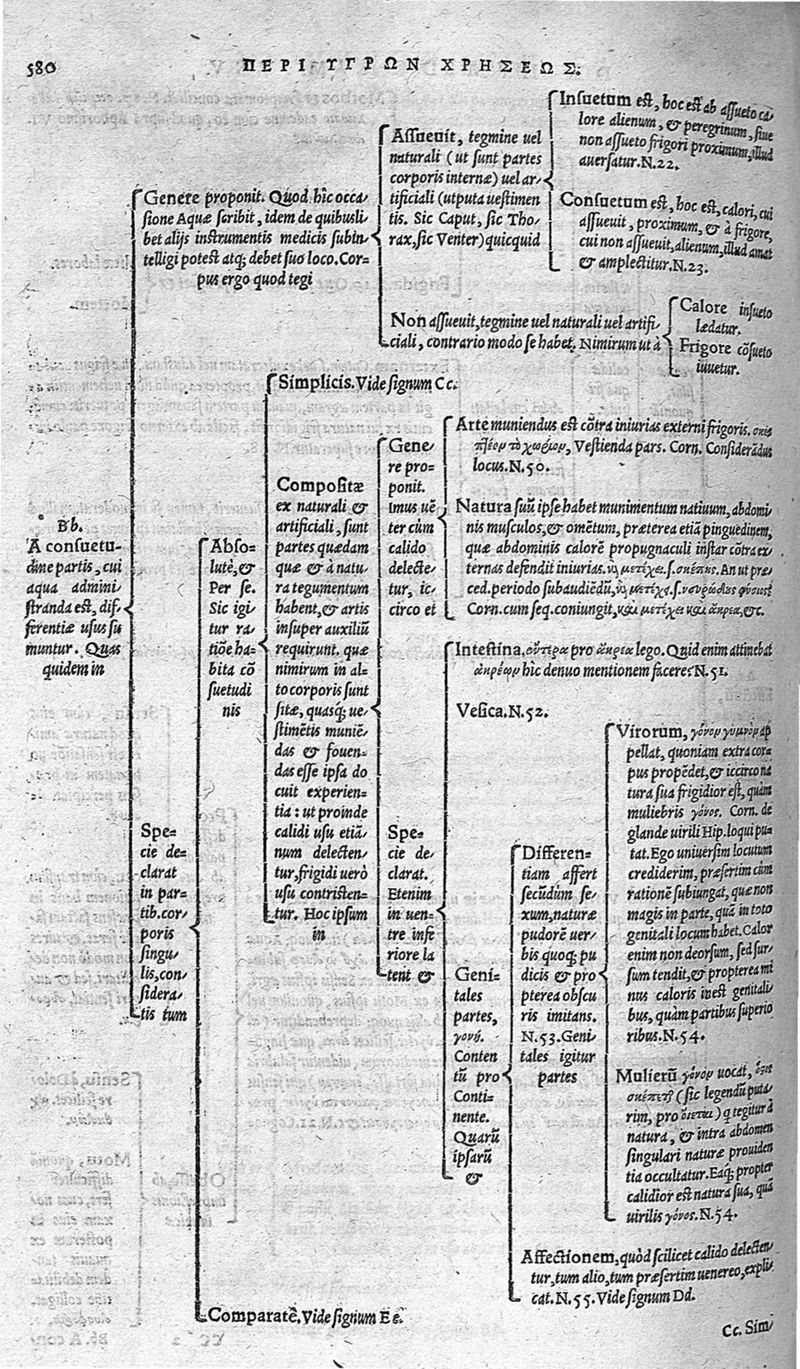 580
ΠΕΡΙ ΥΓΡΩΝ ΧΡΗΣΕΩΣ.
Bb.
A consuetu-
dine partis, cui
aqua admini
stranda est, dif-
ferentiæ usus su
muntur. Quas
quidem in
Genere proponit. Quod hîc occa-
sione Aquæ scribit, idem de quibusli-
bet alijs instrumentis medicis subin-
telligi potest atq; debet suo loco. Cor-
pus ergo quod tegi
Assueuit, tegmine uel
naturali (ut sunt partes
corporis internæ) uel ar-
tificiali (utputa uestimen
tis. Sic Caput, sic Tho-
rax, sic Venter) quicquid
Insuetum est, hoc est ab assueto ca-
lore alienum, & peregrinum, siue
non assueto frigori proximum, illud
auersatur. N.22.
Consuetum est, hoc est, calori, cui
assueuit, proximum, & à frigore,
cui non assueuit, alienum, illud amat
& amplectitur. N.23.
Non assueuit, tegmine uel naturali uel artifi-
ciali, contrario modo se habet. Nimirum ut à
Calore insueto
lædatur.
Frigore cõsueto
iuuetur.
Spe-
cie de-
clarat
in par-
tib. cor-
poris
singu-
lis, con-
sidera-
tis tum
Abso-
lutè, &
Per se.
Sic igi
tur ra-
tiõe ha-
bita cõ
suetudi
nis
Simplicis. Vide signum Cc.
Compositæ
ex naturali &
artificiali, sunt
partes quædam
quæ & à natu-
ra tegumentum
habent, & artis
insuper auxiliũ
requirunt. quæ
nimirum in al-
to corporis sunt
sitæ, quasq; ue-
stimẽtis muniẽ-
das & fouen-
das esse ipsa do
cuit experien-
tia: ut proinde
calidi usu etiã-
num delecten-
tur, frigidi uerò
usu contristen-
tur. Hoc ipsum
in
Gene-
re pro-
ponit.
Imus uẽ-
ter cùm
calido
delecte-
tur, ic-
circo et
Arte muniendus est cõtra iniurias externi frigoris.
Vestienda pars. Corn. Considerãdus
locus. N.50.
Natura suũ ipse habet munimentum natiuum, abdomi-
nis musculos, & omẽtum, præterea etiã pinguedinem,
quæ abdominis calorẽ propugnaculi instar cõtra ex-
ternas defendit iniurias. An ut præ
ced. periodo subaudiẽdũ,
Corn. cum seq. coniungit, καὶ μετέχει καὶ ἄκρεα, &c.
Spe-
cie de-
clarat.
Etenim
in uen-
tre infe
riore la
tent &
Intestina. pro ἄκρεα lego. Quid enim attinebat
ἀκρέων hîc denuo mentionem facere? N.51.
Vesica. N.52.
Geni-
tales
partes,
γονή.
Conten
tũ pro
Conti-
nente.
Quarũ
ipsarũ
&
Differen-
tiam affert
secũdùm se-
xum, naturæ
pudorẽ uer-
bis quoq; pu
dicis & pro
pterea obscu
ris imitans.
N.53. Geni-
tales igitur
partes
Virorum, γόνον γυμνὸν ap
pellat, quoniam extra cor-
pus propẽdet, & iccirco na
tura sua frigidior est, quàm
muliebris γόνος. Corn. de
glande uirili Hip. loqui pu-
tat. Ego uniuersim locutum
crediderim, præsertim cùm
rationẽ subiungat, quæ non
magis in parte, quã in toto
genitali locum habet. Calor
enim non deorsum, sed sur-
sum tendit, & propterea mi
nus caloris inest genitali-
bus, quàm partibus superio
ribus. N.54.
Mulierũ γόνον uocat,
(sic legendũ puta-
rim, pro ) q tegitur à
natura, & intra abdomen
singulari naturæ prouiden
tia occultatur. Eaq; propter
calidior est natura sua, quã
uirilis γόνος. N.54.
Affectionem, quòd scilicet calido delecten-
tur, tum alio, tum præsertim uenereo, expli
cat. N.55. Vide signum Dd.
Comparatè. Vide signum Ee.
Cc. Sim-